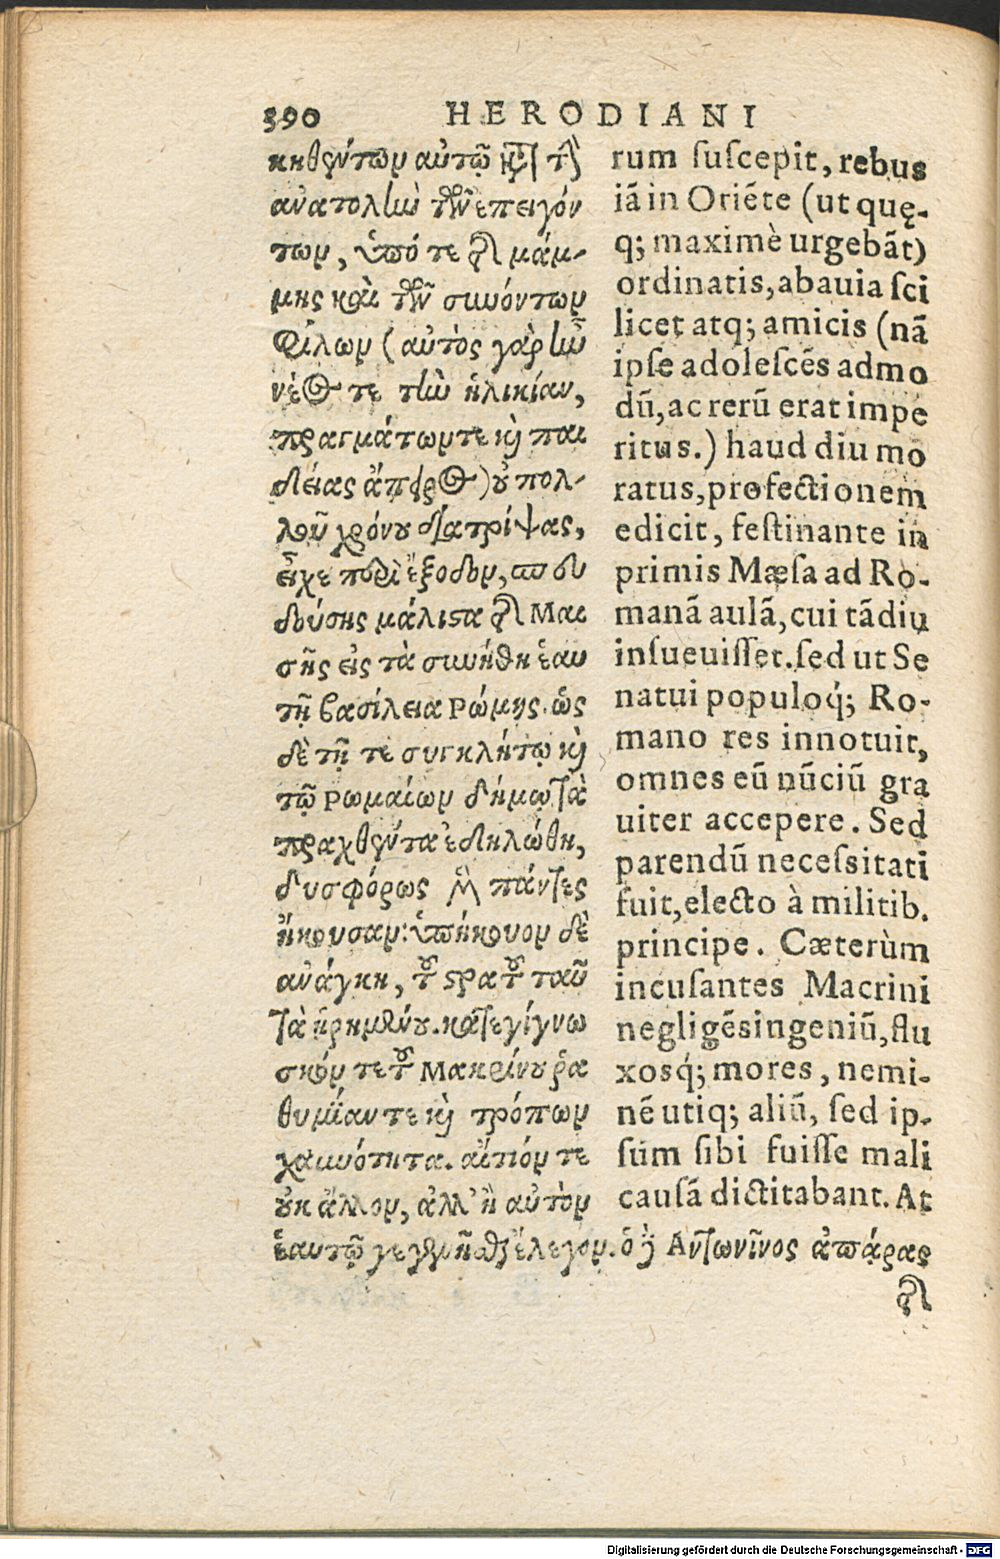 390 HERODIANI
κηθέντων αὐτῷ κατὰ τὴν
ἀνατολὴν τῶν ἐπειγόν
των, ὑπό τε τῆς μάμ-
μης καὶ τῶν συνόντων
φίλων (αὐτὸς γὰρ ἦν
νέος τε τὴν ἡλικίαν,
πραγμάτων τε καὶ παι
δείας ἄπειρος) οὐ πολ-
λοῦ χρόνου διατρίψας,
εἶχε περὶ ἔξοδον, σπευ
δούσης μάλιστα τῆς Μαι
σῆς εἰς τὰ συνήθη ἑαυ
τῇ βασίλεια Ρώμης. ὡς
δὲ τῇ τε συγκλήτῳ καὶ
τῷ Ρωμαίων δήμῳ τὰ
πραχθέντα ἐδηλώθη,
δυσφόρως μὲν πάντες
ἤκουσαν. ὑπήκουον δὲ
ἀνάγκῃ, τοῦ στρατοῦ ταῦ
τα ᾑρημένου. κατεγίγνω
σκόν τε τοῦ Μακρίνου ῥα
θυμίαν τε καὶ τρόπων
χαυνότητα. αἴτιόν τε
οὐκ ἄλλον, ἀλλ' ἢ αὐτὸν
ἑαυτῷ γεγενῆσθαι ἔλεγον. ὁ δὲ Ἀντωνῖνος ἀπάρας
τῆς
rum suscepit, rebus
iã in Oriẽte (ut quę-
q; maximè urgebãt)
ordinatis, abauia sci
licet atq; amicis (nã
ipse adolescẽs admo
dũ, ac rerũ erat impe
ritus.) haud diu mo
ratus, profectionem
edicit, festinante in
primis Mæsa ad Ro-
manã aulã, cui tãdiu
insueuisset. sed ut Se
natui populoq́; Ro-
mano res innotuit,
omnes eũ nũciũ gra
uiter accepere. Sed
parendũ necessitati
fuit, electo à militib.
principe. Cæterùm
incusantes Macrini
negligẽs ingeniũ, flu
xosq́; mores, nemi-
nẽ utiq; aliũ, sed ip-
sum sibi fuisse mali
causã dictitabant. At
Digitalisierung gefördert durch die Deutsche Forschungsgemeinschaft - DFG